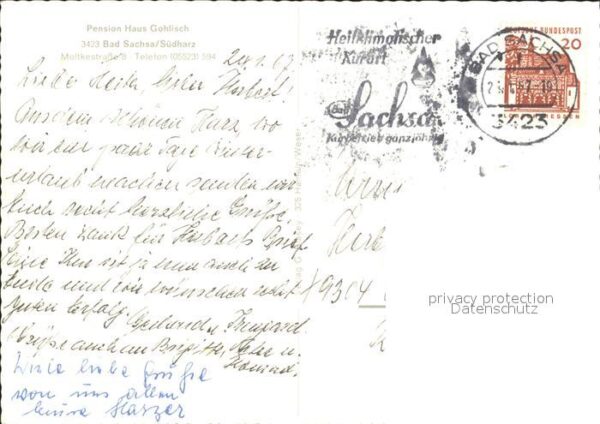 Pension Haus Gohlisch
3423 Bad Sachsa/Südharz
Moltkestraße 8 Telefon (05523) 594
24.1.67
Liebe Heike, lieber Herbert!
Aus dem schönen Harz, wo
wir ein paar Tage Winter-
urlaub machen senden wir
Euch recht herzliche Grüße.
Besten Dank für Herberts Brief
Eine ist ja nun auch zu
Ende und wir wünschen recht
guten Erfolg.
Grüße auch an Brigitte, u.
Konrad.
Viele liebe Grüße
von uns allen
Eure Harzer
Heilklimatischer
Kurort
Bad
Sachsa
Kurbetrieb ganzjährig
BAD SACHSA
3423
DEUTSCHE BUNDESPOST
20
privacy protection
Datenschutz